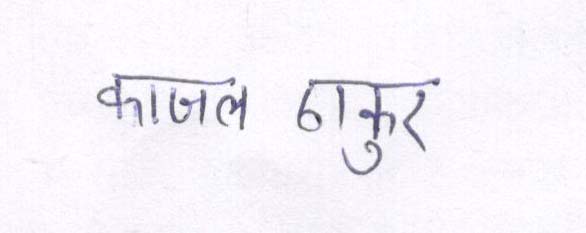 काजल ठाकुर